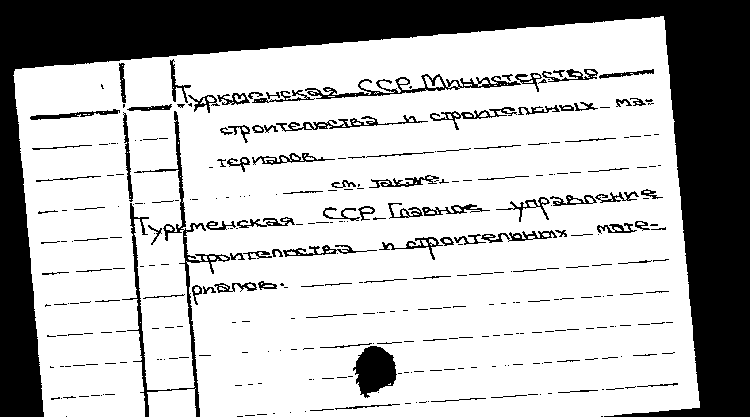 Туркменская ССР. Министерство
строительства и строительных ма-
териалов.
см. также.
Туркменская ССР. Главное управление
строительства и строительных мате-
риалов.